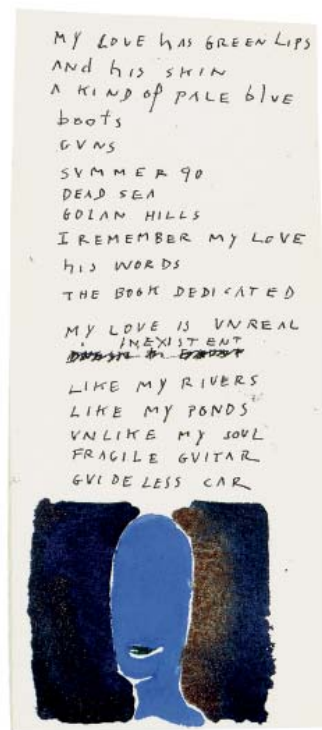 MY LOVE hAS GREEN LIPS
AND his SKIN
A KIND of PALE blUE
boots
GUNS
SUMMER 90
DEAD SEA
GOLAN HILLS
I REMEMBER MY LOVE
his WORDS
THE BOOK DEDICATED
MY LOVE IS UNREAL
INEXISTENT
LIKE MY RIVERS
LIKE MY PONDS
UNLIKE MY SOUL
FRAGILE GUITAR
GUIDELESS CAR